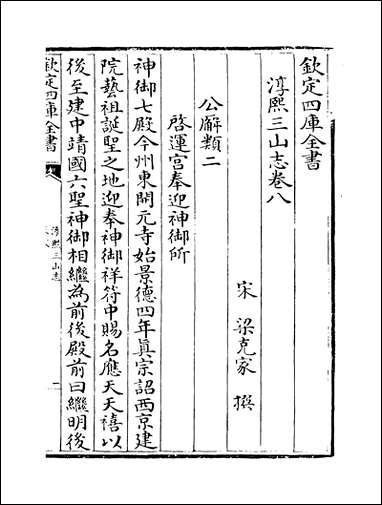 欽定四庫全書
淳熙三山志卷八
宋 梁克家 撰
公廨類二
啓運宮奉迎神御所
神御七殿今州東開元寺始景德四年真宗詔西京建
院藝祖誕聖之地迎奉神御祥符中賜名應天天禧以
後至建中靖國六聖神御相繼為前後殿前曰繼明後
欽定四庫全書
淳熙三山志
卷八
一